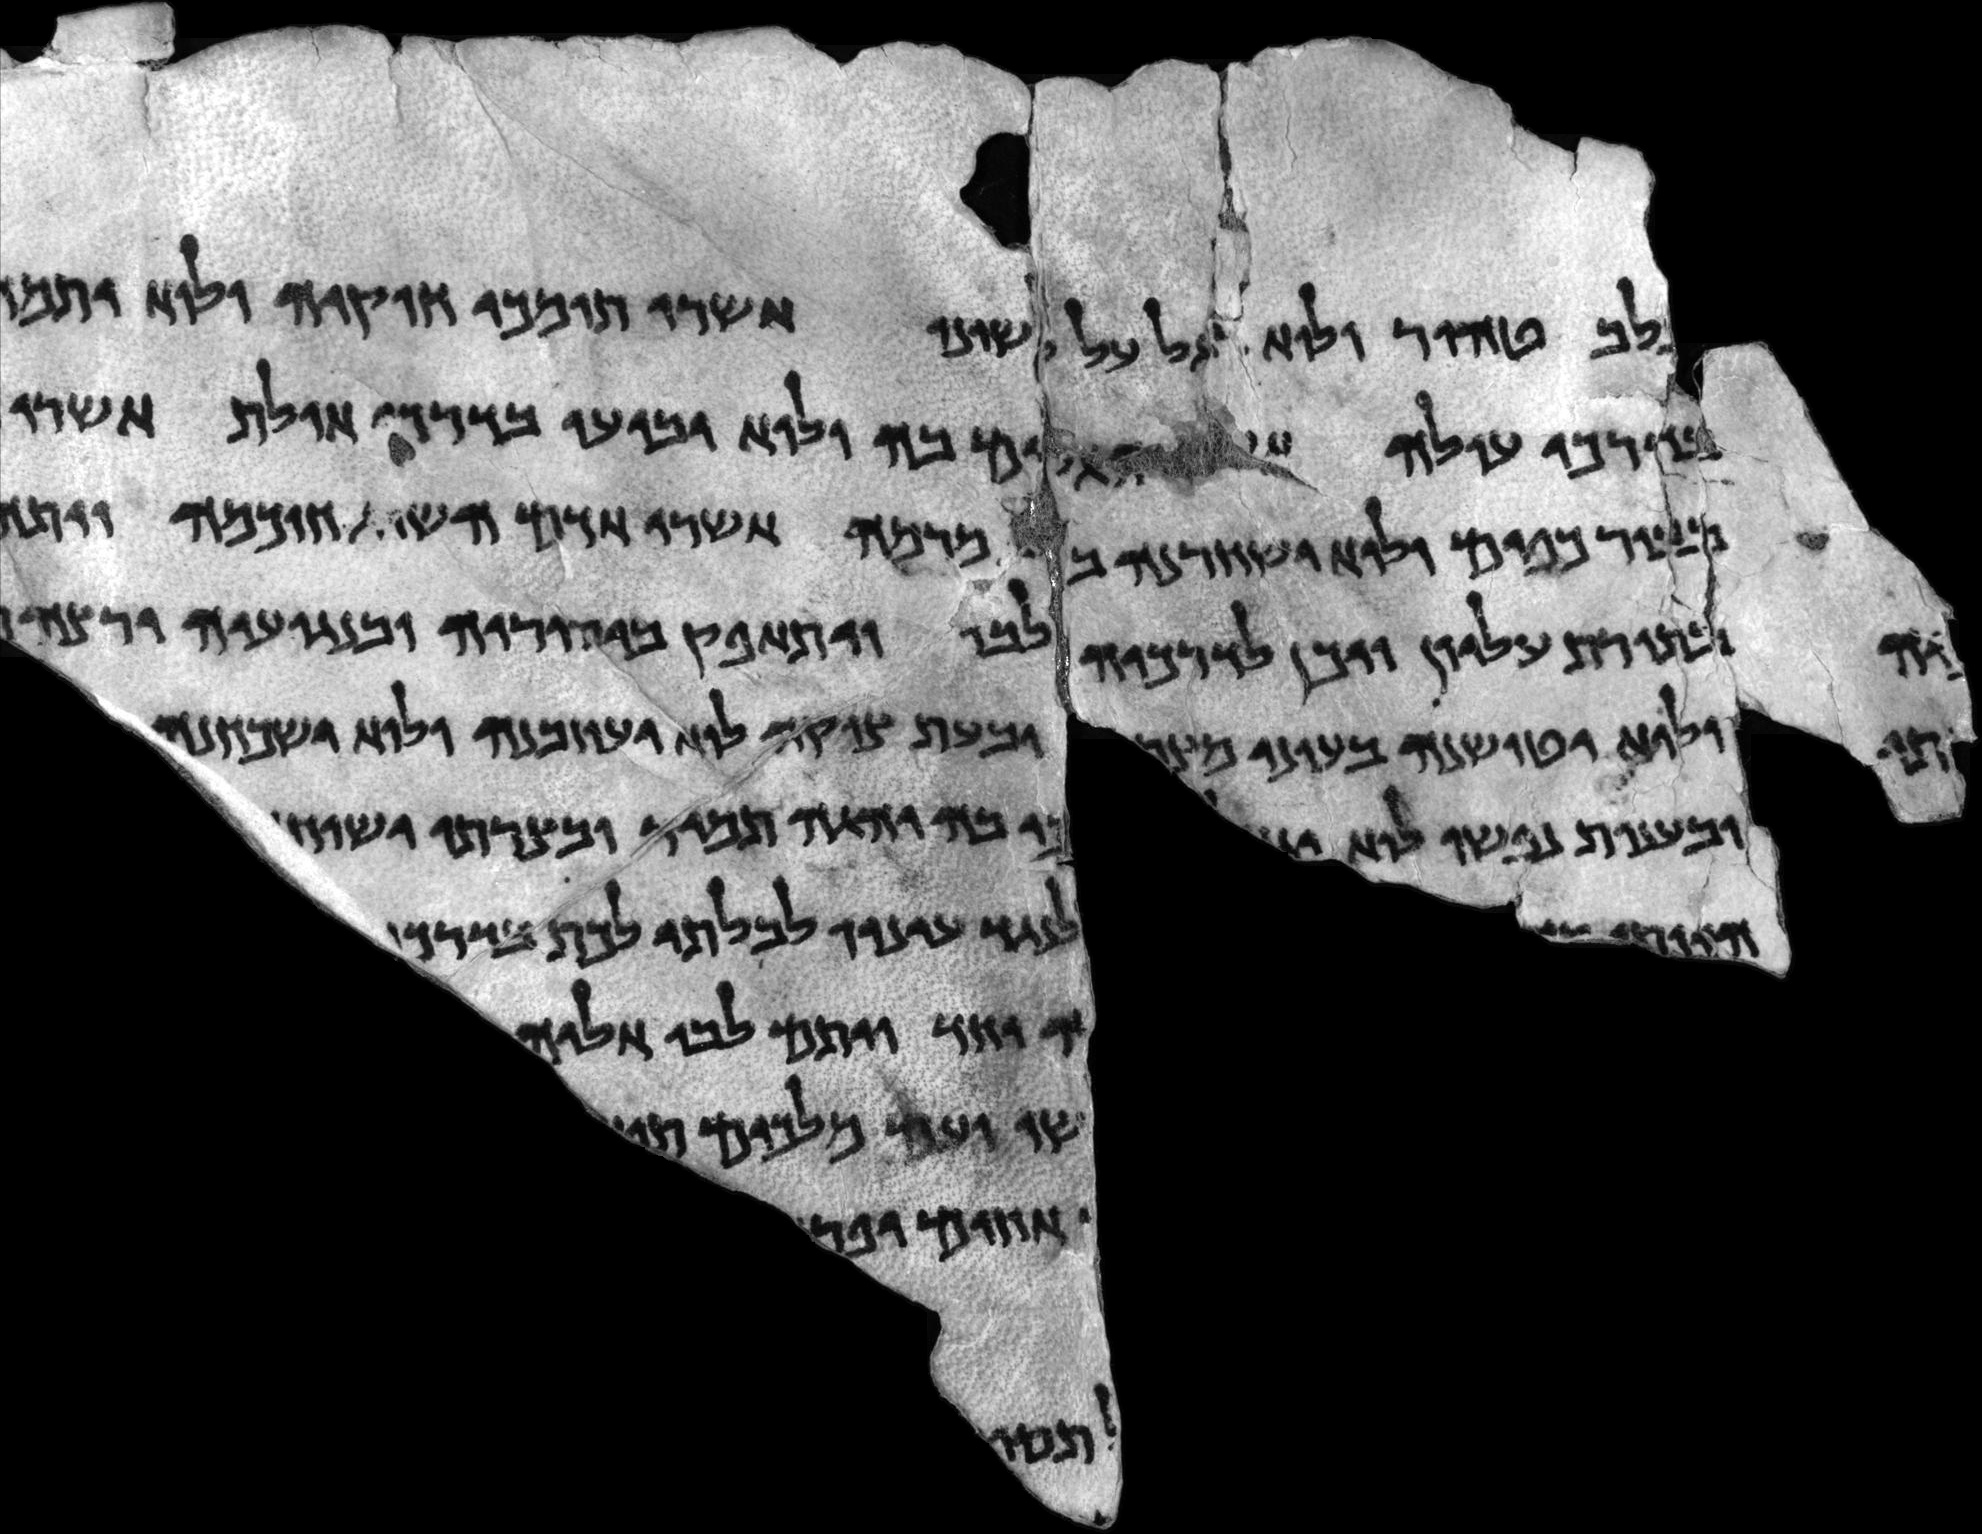 בלב טהור ולוא רגל על לשונו אשרי תומכי חוקיה ולוא יתמו
בדרכי עולה הגלים בה ולוא יביעו בדרכי אולת אשרי
בבור כפים ולוא ישחרנה בלב מרמה אשרי אדם השיג חוכמה ויתה
בתורת עליון ויכן לדרכיה לבו ויתאפק ביסוריה ובנגועיה ירצה
ולוא יטושנה בעוני מצר ובעת צוקה לוא יעוזבנה ולוא ישכחנה
ובענות נפשו לוא כי בה יהגה תמיד ובצרתו ישוחח
לנגד עיניו לבלתי לכת בדרכי
יחד ויתם לבו אליה
שו ועם מלכים תושי
אחים יפר
תטי